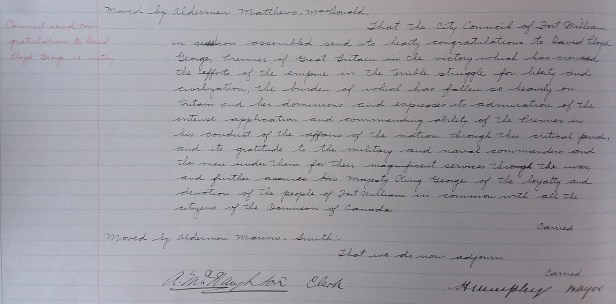 Moved by Aldermen Matthews - MacDonald.
Council send con
gratulations to David
Lloyd George re victory
That the City Council of Fort William
in session assembled send its hearty congratulations to David Lloyd
George, Premier of Great Britain in the victory which has crowned
the efforts of the empire in the terrible struggle for liberty and
civilization, the burden of which has fallen so heavily on
Britain and her dominions and expresses its admiration of the
intense application and commanding ability of the Premier in
his conduct of the affairs of the nation through this critical period,
and its gratitude to the military and naval commanders and
the men under them for their magnificent services through the war,
and further assures His Majesty King George of the loyalty and
devotion of the people of Fort William in common with all the
citizens of the Dominion of Canada
Carried
Moved by Aldermen - Smith:-
That we do now adjourn
Carried
A. McNaughton Clerk
H Murphy Mayor